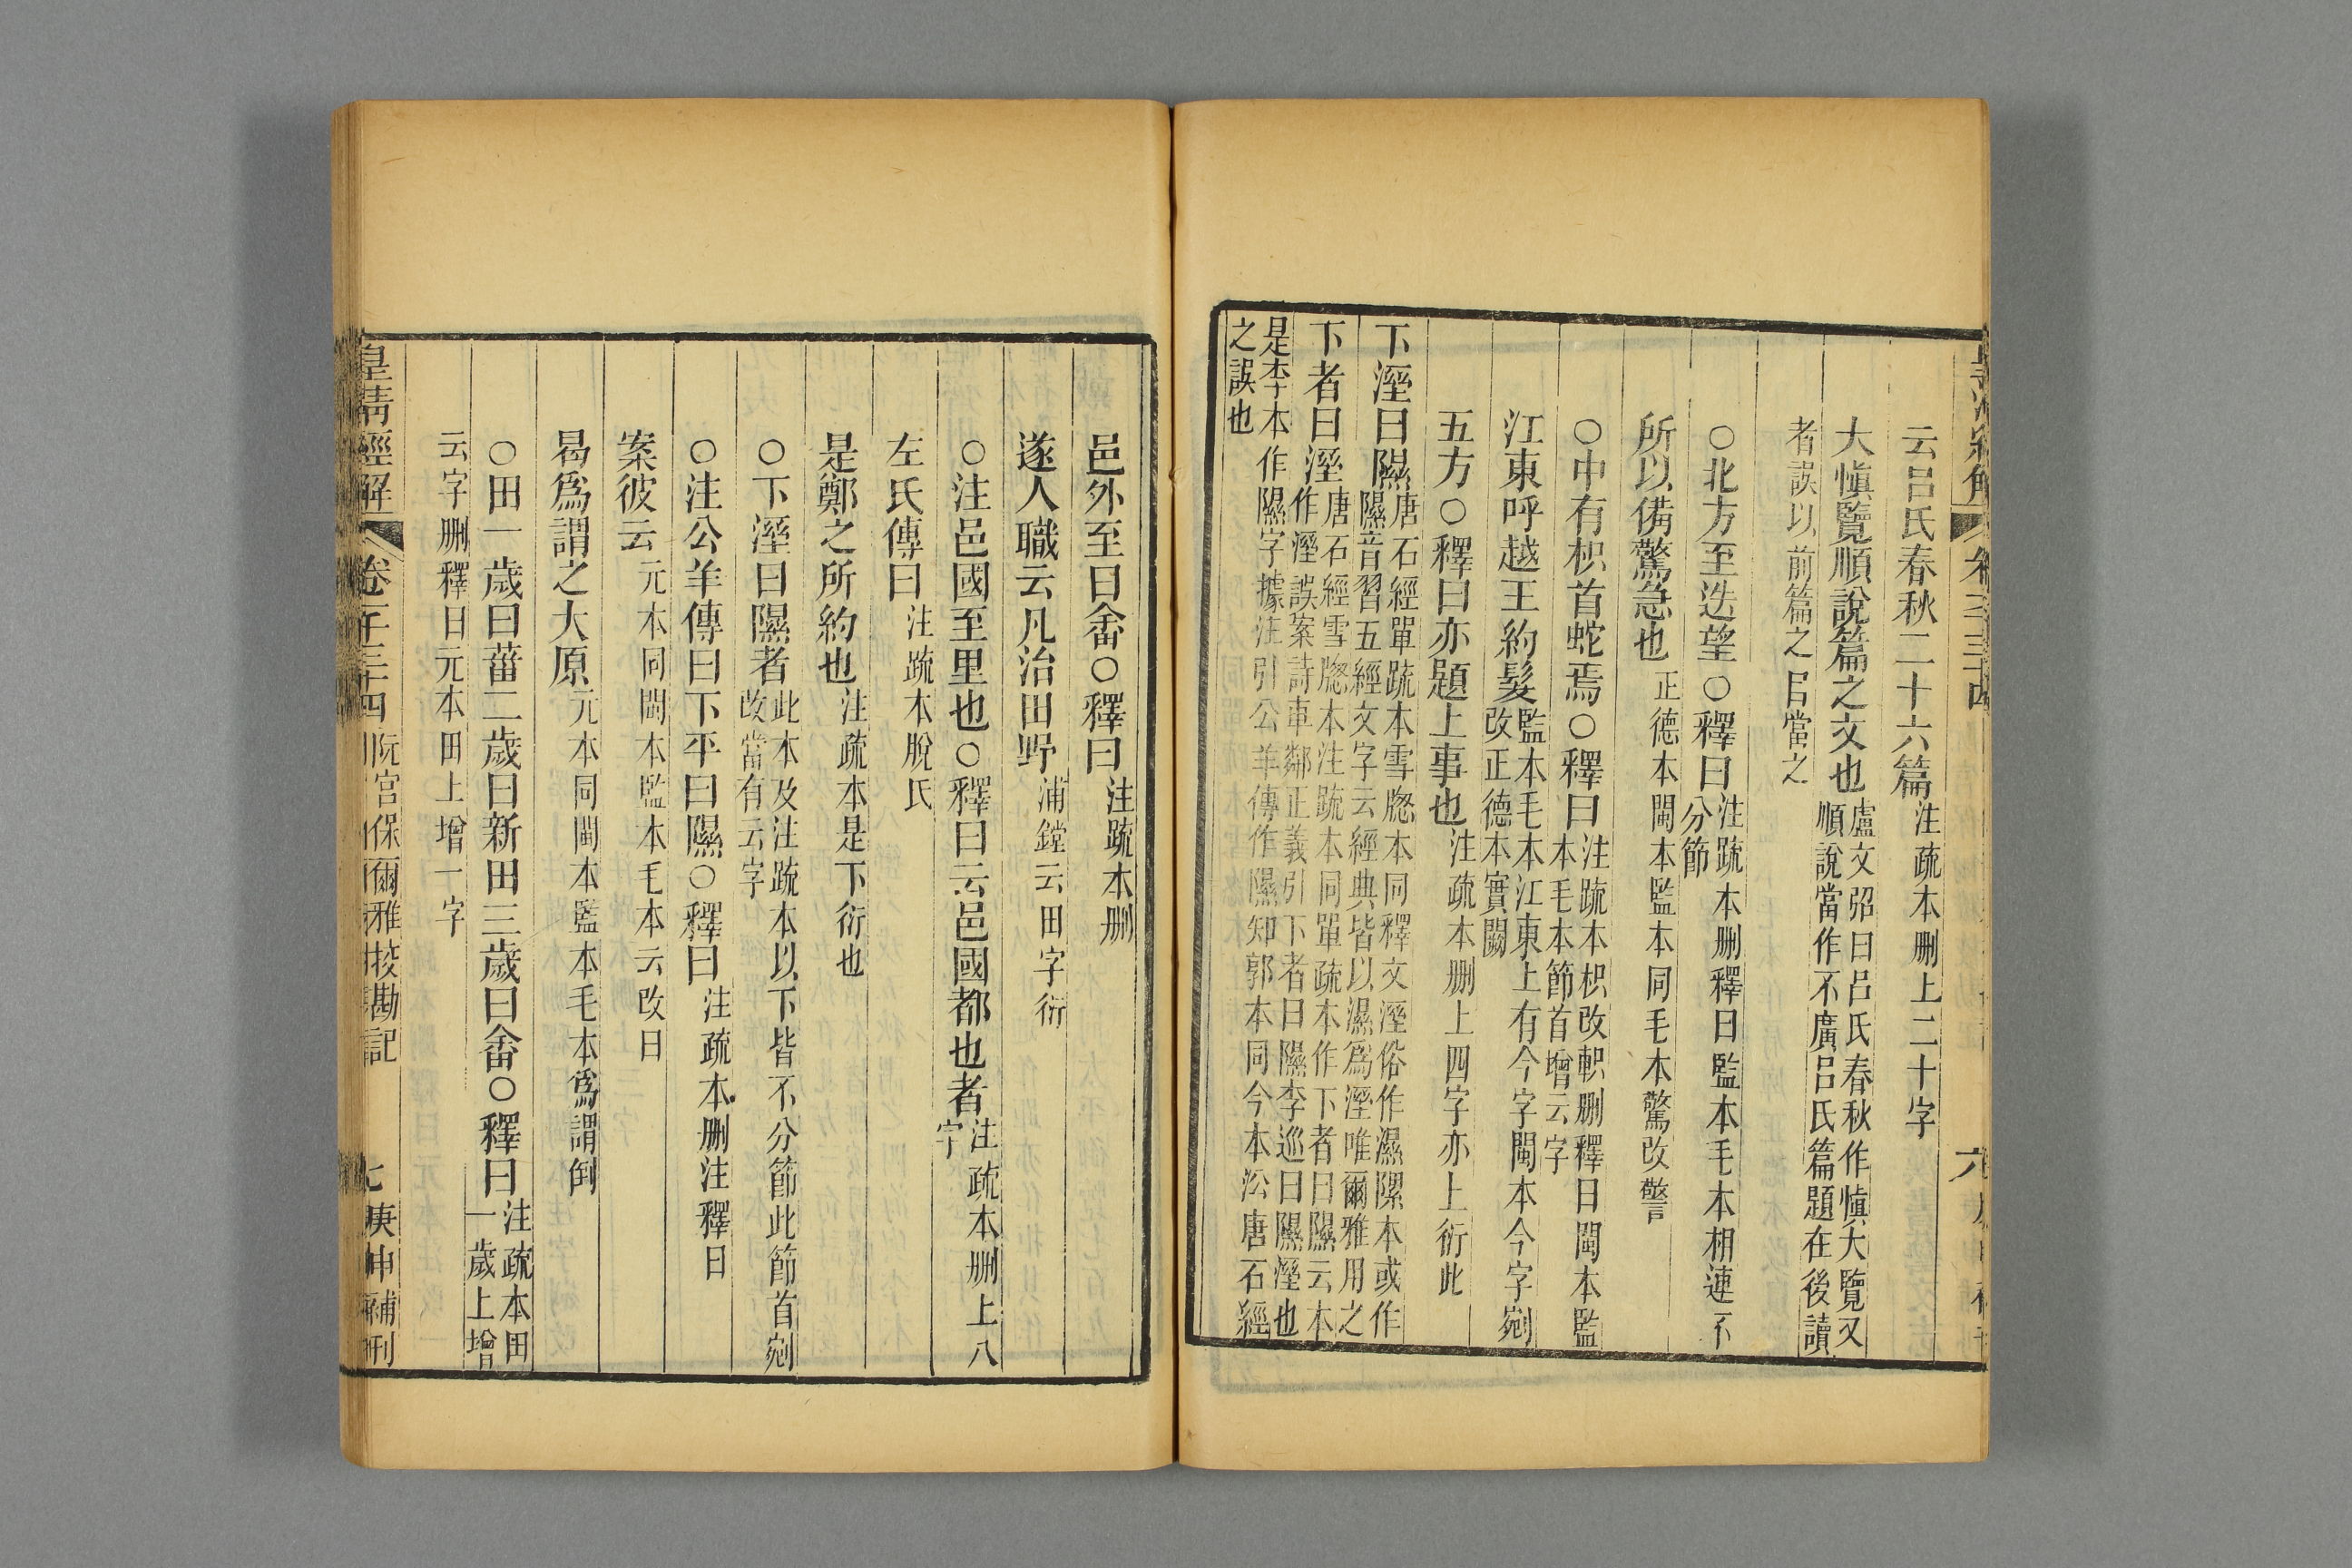 云呂氏春秋二十六篇注疏本刪上二十字
大愼覽順說篇之文也盧文弨曰呂氏春秋作愼大覽又順說當作不廣呂氏篇題在後讀
者誤以前篇之目當之
○北方至迭望○釋曰注疏本刪釋曰監本毛本相連不分節
所以備驚急也正德本閩本監本同毛本驚改警
○中有枳首蛇焉○釋曰注疏本枳改軹刪釋曰閩本監本毛本節首增云字
江東呼越王約髮監本毛本江東上有今字閩本今字剜改正德本實闕
五方○釋曰亦題上事也注疏本刪上四字亦上衍此
下溼曰隰唐石經單疏本雪牕本同釋文溼俗作濕隰本或作隰音習五經文字云經典皆以濕爲溼唯爾雅用之
下者曰溼唐石經雪牕本注疏本同單疏本作下者曰隰云本作溼誤案詩車鄰正義引下者曰隰李巡曰隰溼也
是李本作隰字據注引公羊傳作隰知郭本同今本沿唐石經之誤也
六
邑外至曰畬○釋曰注疏本刪
遂人職云凡治田野浦鏜云田字衍
○注邑國至里也○釋曰云邑國都也者注疏本刪上八字
左氏傳曰注疏本脫氏
是鄭之所約也注疏本是下衍也
○下溼曰隰者此本及注疏本以下皆不分節此節首剜改當有云字
○注公羊傳曰下平曰隰○釋曰注疏本刪注釋曰
案彼云元本同閩本監本毛本云改曰
曷爲謂之大原元本同閩本監本毛本爲謂倒
○田一歲曰菑二歲曰新田三歲曰畬○釋曰注疏本田一歲上增
云字刪釋曰元本田上增一字
皇清經解 卷千三十四 阮宮保爾雅挍勘記 七 庚申補刊